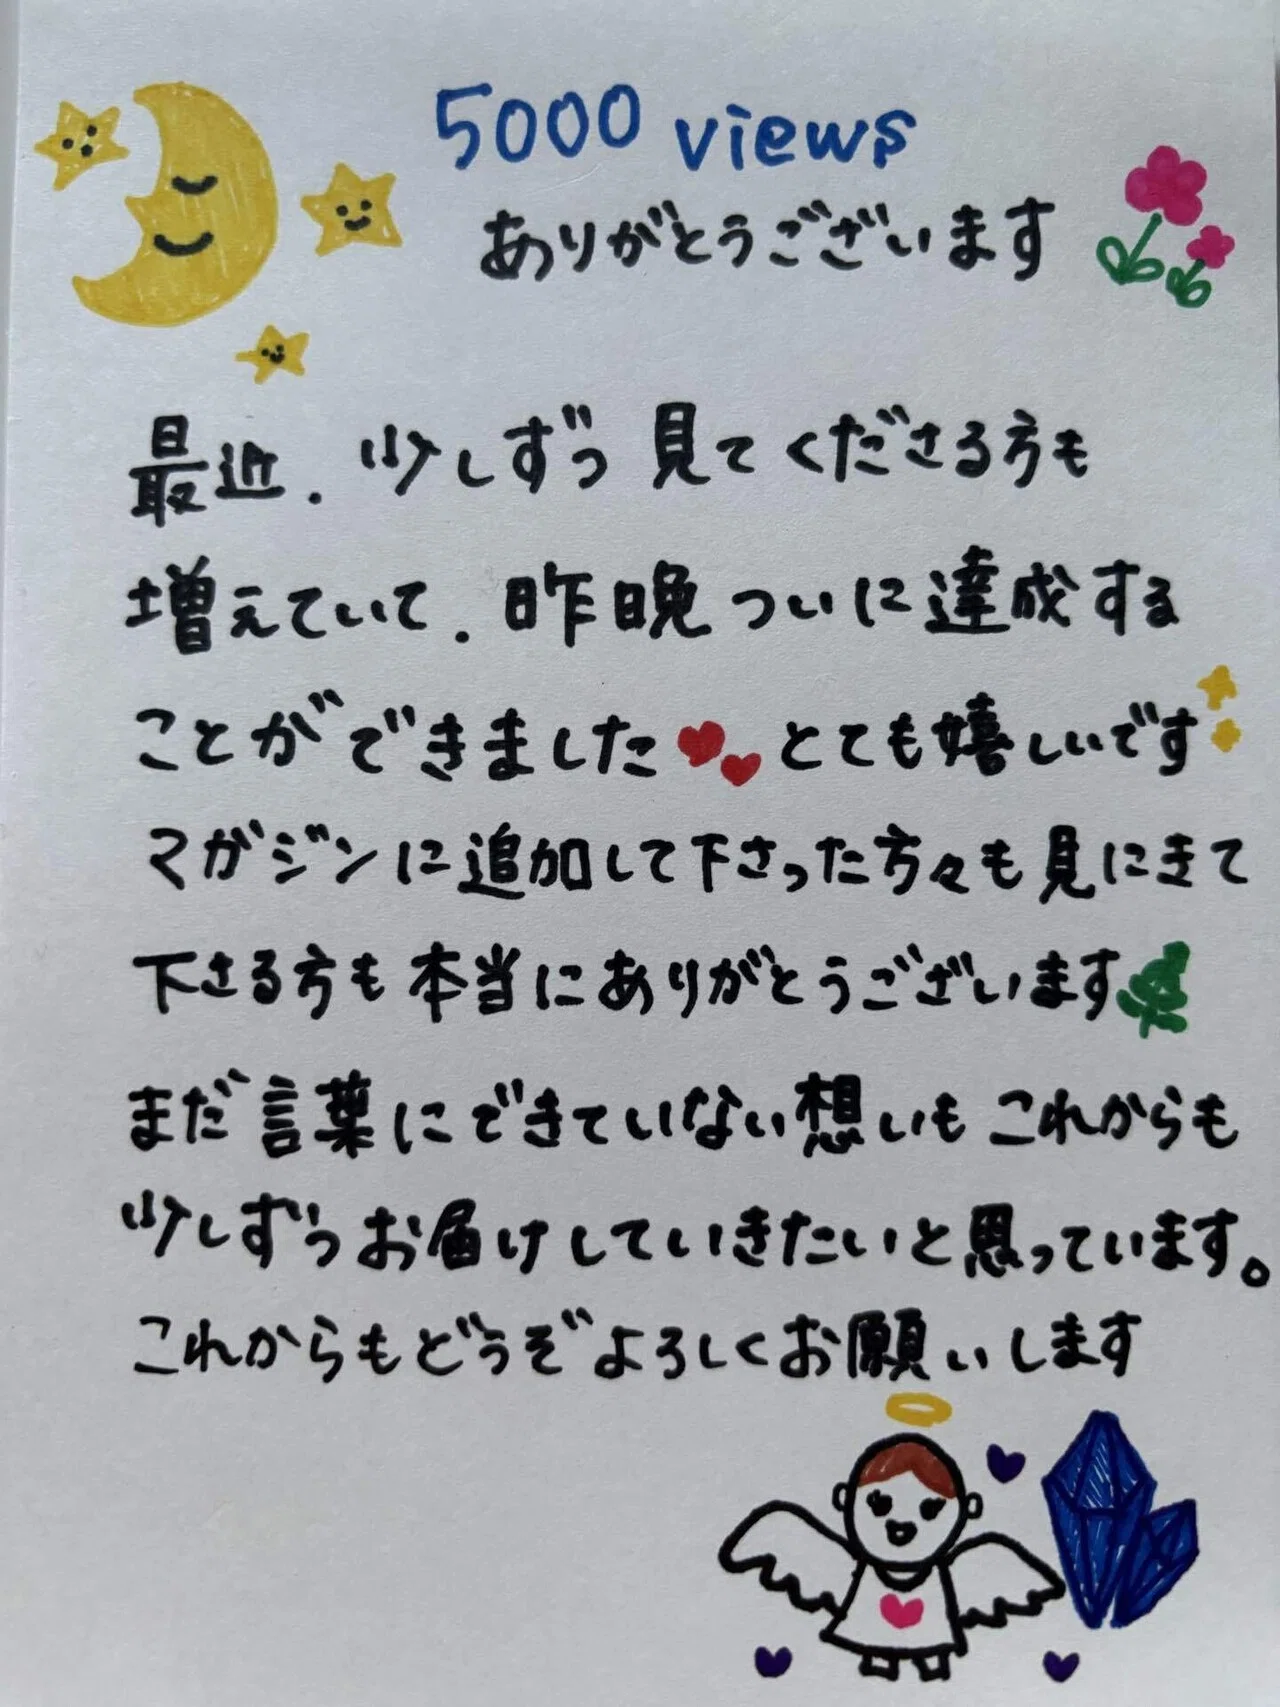 5000 views
ありがとうございます
最近、少しずつ見てくださる方も
増えていて、昨晩ついに達成する
ことができました とても嬉しいです
マガジンに追加して下さった方々も見にきて
下さる方も本当にありがとうございます
まだ言葉にできていない想いもこれからも
少しずつお届けしていきたいと思っています。
これからもどうぞよろしくお願いします